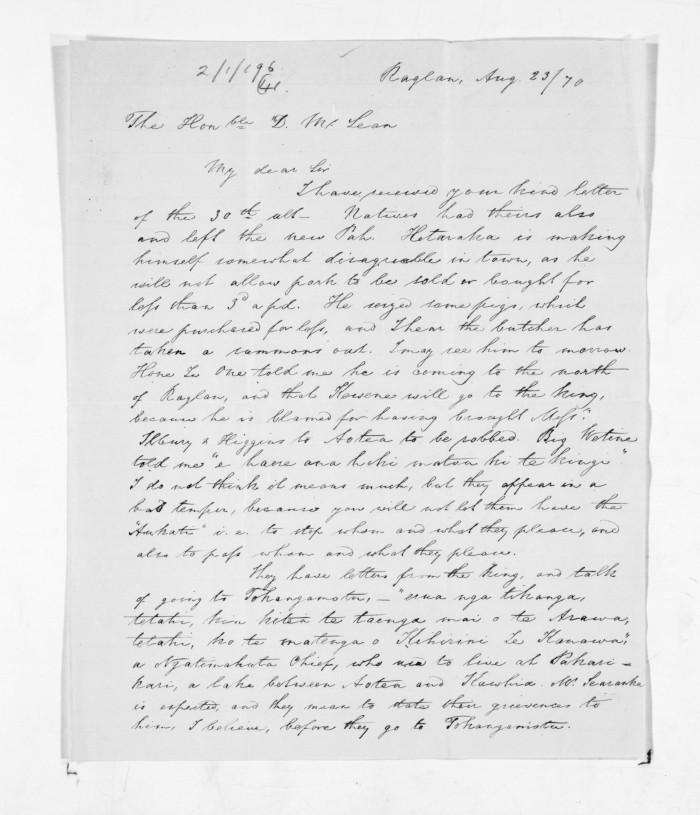 2/1/196
Raglan, Aug. 23/70
The Honble D. Mc Lean
My dear Sir
I have received your kind letter
of the 30th ult – Natives had theirs also
and left the new Pah. Hetaraka is making
himself somewhat disagreeable in town, as he
will not allow pork to be sold or bought for
less than 3d a pd. He seized some pigs, which
were purchased for less, and I hear the butcher has
taken a summons out. I may see him to morrow.
Hone Te One told me he is coming to the north
of Raglan, and that Kewene will go to the King,
because he is blamed for having brought Messrs
& Higgins to Aotea to be robbed. Big Wetene
told me "e haere ana hoki matou ki te kingi"
I do not think it means much, but they appear in a
bad temper, because you will not let them have the
"Aukati" i.e. to stop whom and what they please, and
also to pass whom and what they please.
They have letters from the King, and talk
of going to Tokangamutu, – "erua nga tikanga,
tetahi, kia kitea te taenga mai o te Arawa,
tetahi, ko te matenga o Kihirini Te Kanawa",
a Ngatimahuta Chief, who used to live at Pakari-
kari, a lake between Aotea and Kawhia. Mr. Searancke
is expected, and they mean to state their grievances to
him, I believe, before they go to Tokangamutu.